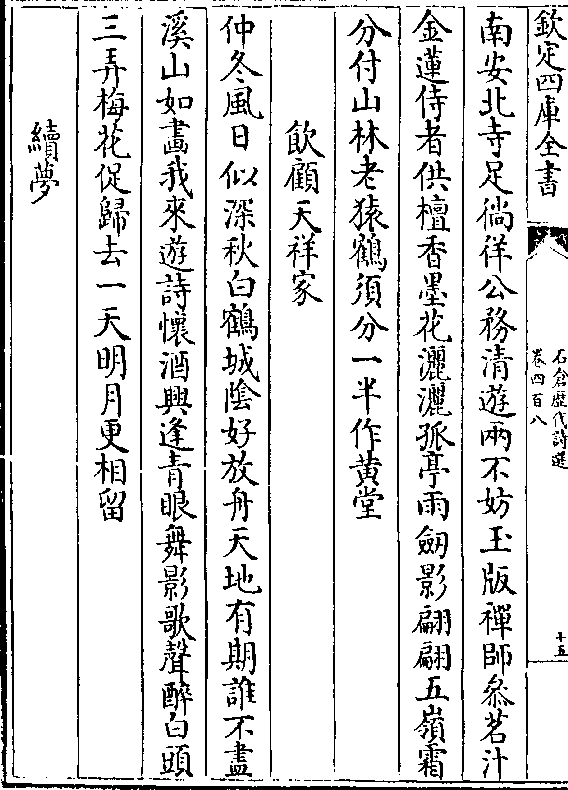 欽定四庫全書
石倉歷代詩選
卷四百八
十五
南安北寺足徜徉公務清遊兩不妨玉版禪師叅茗汁
金蓮侍者供檀香墨花灑灑孤亭雨劒影翩翩五嶺霜
分付山林老猿鶴須分一半作黄堂
飲顧天祥家
仲冬風日似深秋白鶴城陰好放舟天地有期誰不盡
溪山如畵我來遊詩懷酒興逢青眼舞影歌聲醉白頭
三弄梅花促歸去一天明月更相留
續夢